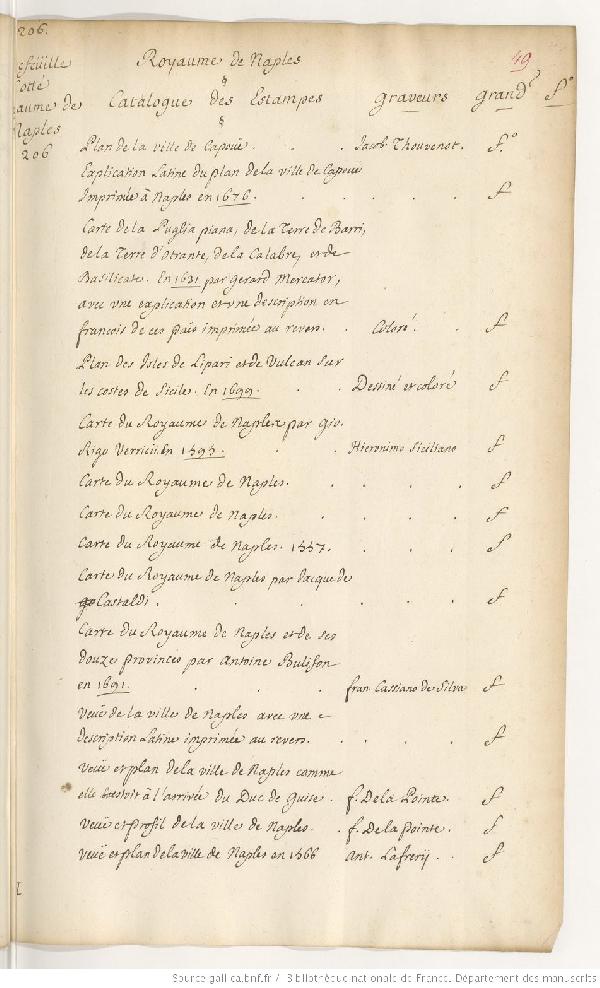 206.
efeüille
Cotté
aume de
Naples
206
Royaume de Naples
49
Catalogue des Estampes graveurs grand.r f.o
Plan de la ville de Capoüe . . Jacob Thouvenot. f.o
Explication Latine du plan de la ville de Capoüe
Imprimée à Naples en 1676. . . . . f
Carte de la Puglia piana, de la Terre de Barri,
de la Terre d'otrante, de la Calabre, et de
Basilicate. En 1631 par Gerard Mercator,
avec vne explication et vne description en
francois de ces païs imprimée au revers. . Coloré. . f
Plan des Isles de Lipari et de Vulcan sur
les costes de Sicile. En 1699. . . Destiné et coloré f
Carte du Royaume de Naples par gio.
Rigo Verricis En 1593. . . Hieronimo Siciliano f
Carte du Royaume de Naples. . . . . f
Carte du Royaume de Naples. . . . . f
Carte du Royaume de Naples. 1557. . . . f
Carte du Royaume de Naples par Jacque de
Castaldi. . . . . . f
Carte du Royaume de Naples et de ses
douze provinces par Antoine Bulifon
en 1691. . . fran Cassiano de Silva f
Veüe de la ville de Naples avec vne
description Latine imprimée au revers. . . . f
Veüe et plan de la ville de Naples comme
elle estoit à l'arrivée du Duc de Guise. f. De la Pointe. f
Veüe et profil de la ville de Naples. . f. De la pointe. f
Veüe et plan de la ville de Naples en 1566 Ant. Lafrerij . . f
Source gallica.bnf.fr / Bibliothèque nationale de France. Département des manuscrits